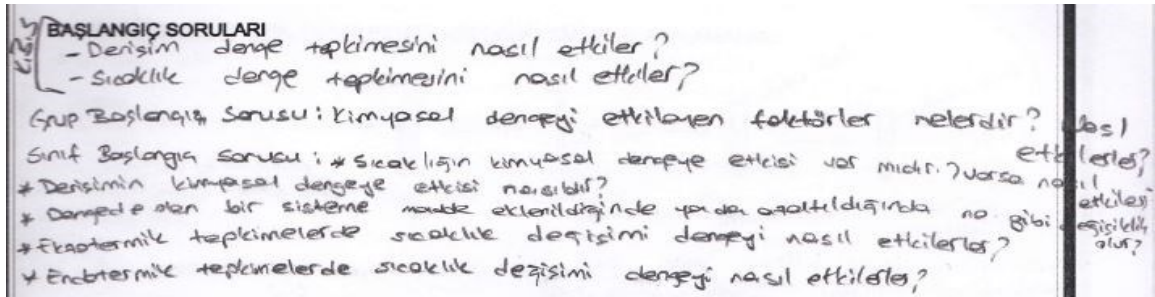 Kişisel
BAŞLANGIÇ SORULARI
- Derişim denge tepkimesini nasıl etkiler?
- Sıcaklık denge tepkimesini nasıl etkiler?
Grup Başlangıç Sorusu: Kimyasal dengeyi etkileyen faktörler nelerdir? Nasıl etkilerler?
Sınıf Başlangıç sorusu: * Sıcaklığın kimyasal dengeye etkisi var mıdır? Varsa nasıl etkiler
* Derişimin kimyasal dengeye etkisi nasıldır?
* Dengede olan bir sisteme madde eklenildiğinde ya da azaltıldığında ne gibi değişiklik olur?
* Ekzotermik tepkimelerde sıcaklık değişimi dengeyi nasıl etkilerler?
* Endotermik tepkimelerde sıcaklık değişimi dengeyi nasıl etkilerler?